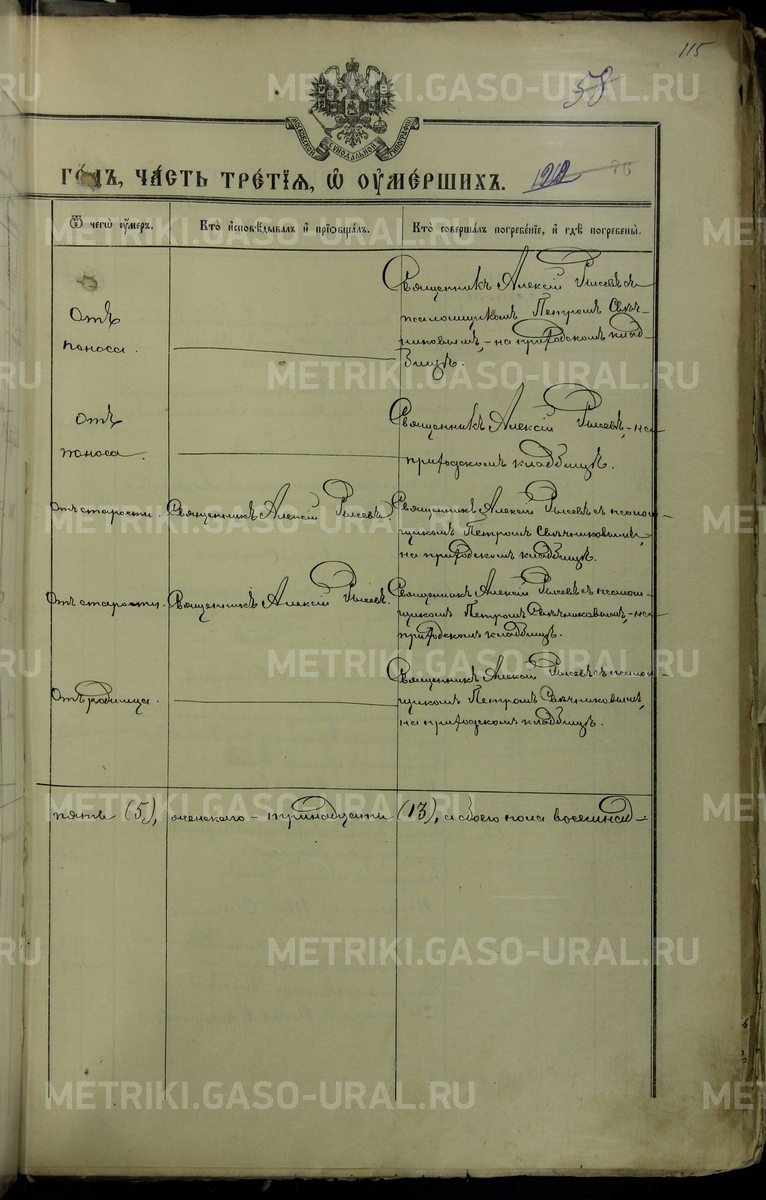 115
58
МОСКОВСКОЙ СѴНОДАЛЬНОЙ ТИПОГРАФІИ
ГО́ДЪ, ЧА́СТЬ ТРЕ́ТІѦ, Ѡ҆ ОУ҆МЕ́РШИХЪ. 1212 76
Ѿ чегѡ̀ оу҆́меръ.
Кто̀ и҆сповѣ́дывалъ и҆ прїѡбща́лъ.
Кто̀ соверша́лъ погребе́нїе, и҆ гдѣ̀ погребены̀.
Отъ
поноса.
Священникъ Алексій Рысевъ съ
псаломщикомъ Петромъ Свѣч-
никовымъ, - на приходскомъ клад-
бищѣ.
Отъ
поноса.
Священникъ Алексій Рысевъ, - на
приходскомъ кладбищѣ.
Отъ старости.
Священникъ Алексій Рысевъ.
Священникъ Алексій Рысевъ съ псалом-
щикомъ Петромъ Свѣчниковымъ,
на приходскомъ кладбищѣ.
Отъ старости.
Священникъ Алексій Рысевъ.
Священникъ Алексій Рысевъ съ псалом-
щикомъ Петромъ Свѣчниковымъ, - на
приходскомъ кладбищѣ.
Отъ родимца.
Священникъ Алексій Рысевъ съ псалом-
щикомъ Петромъ Свѣчниковымъ,
на приходскомъ кладбищѣ.
пять (5), женскаго - тринадцать (13), а обоего пола восемнад-
METRIKI.GASO-URAL.RU